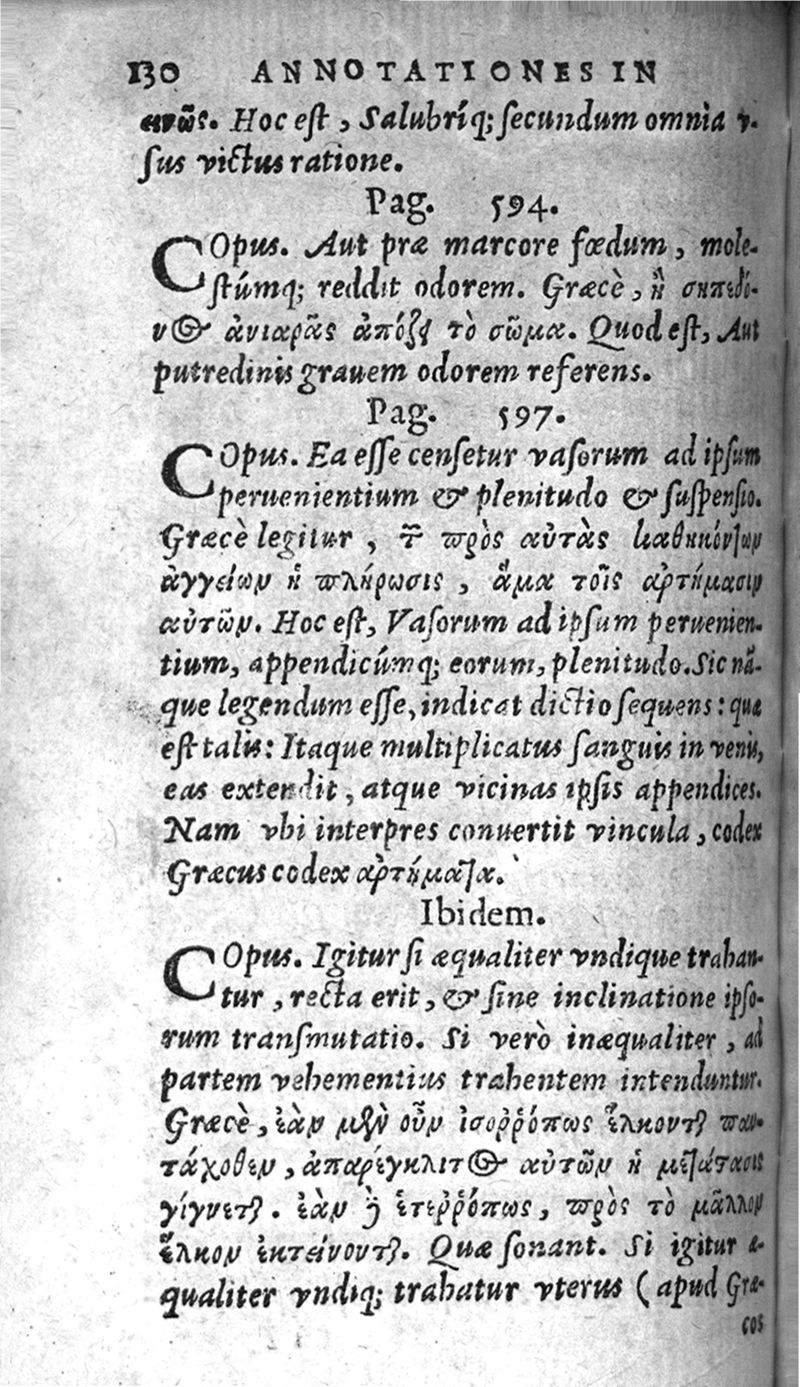 130 ANNOTATIONES IN
Hoc est, Salubríq; secundum omnia v-
sus victus ratione.
Pag. 594.
COpus. Aut præ marcore fœdum, mole-
stúmq; reddit odorem. Græcè, ἢ σηπεδό-
νος ἀνιαρᾶς ἀπόζει τὸ σῶμα. Quod est, Aut
putredinis grauem odorem referens.
Pag. 597.
COpus. Ea esse censetur vasorum ad ipsum
peruenientium & plenitudo & suspensio.
Græcè legitur, τῶν πρὸς αὐτὰς καθηκόντων
ἀγγείων ἡ πλήρωσις, ἅμα τοῖς ἀρτήμασιν
αὐτῶν. Hoc est, Vasorum ad ipsum peruenien-
tium, appendicúmq; eorum, plenitudo. Sic nã-
que legendum esse, indicat dictio sequens: quæ
est talis: Itaque multiplicatus sanguis in venis,
eas extendit, atque vicinas ipsis appendices.
Nam vbi interpres conuertit vincula, codex
Græcus codex ἀρτήματα.
Ibidem.
COpus. Igitur si æqualiter vndique trahan-
tur, recta erit, & sine inclinatione ipso-
rum transmutatio. Si verò inæqualiter, ad
partem vehementius trahentem intenduntur.
Græcè, ἐὰν μὲν οὖν ἰσορῤόπως ἕλκονται παν-
τάχοθεν, ἀπαρέγκλιτος αὐτῶν ἡ μετάστασις
γίγνεται. ἐὰν δὲ ἑτερῤόπως, πρὸς τὸ μᾶλλον
ἕλκον ἐκτείνονται. Quæ sonant. Si igitur æ-
qualiter vndiq; trahatur vterus (apud Græ-
cos